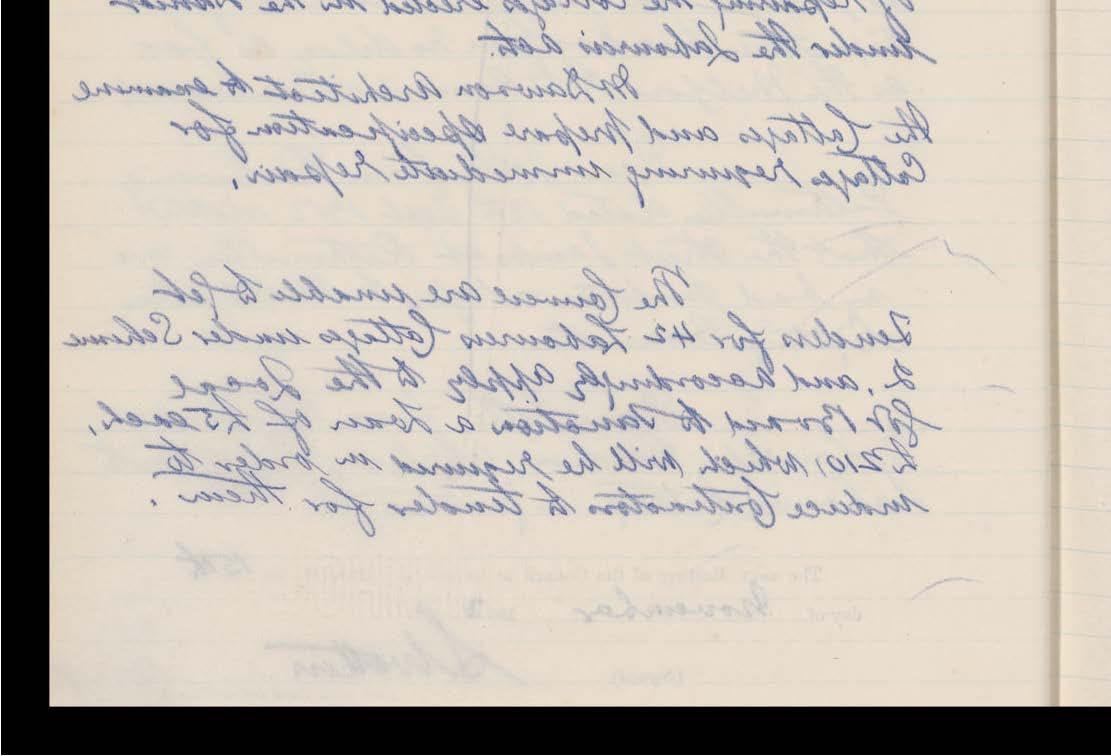 of repairing the Cottages erected in the
under the Labourers act.
Mr Dawson Architect to examine
the Cottages and prepare specification for
Cottages requiring immediate repair.
The Council are unable to get
Tenders for 42 Labourers Cottages under Scheme
2, and accordingly apply to the Local
Govt Board to sanction a loan of £5 each,
£210, which will be required in order to
induce Contractors to tender for them.
The next Meeting of the Council 15th
day of November
(Signed)